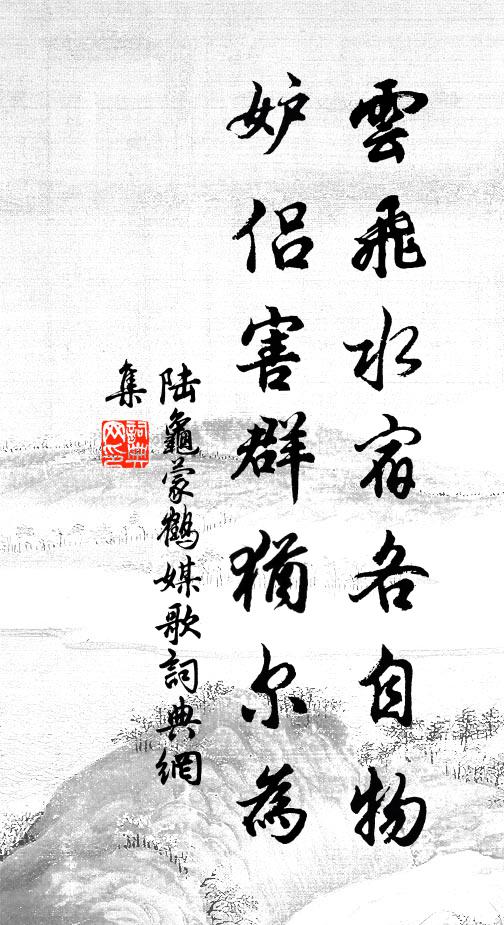 雲飛水宿各自物
妒侶害群猶尔為
陆龜蒙鶴媒歌詞典網
集